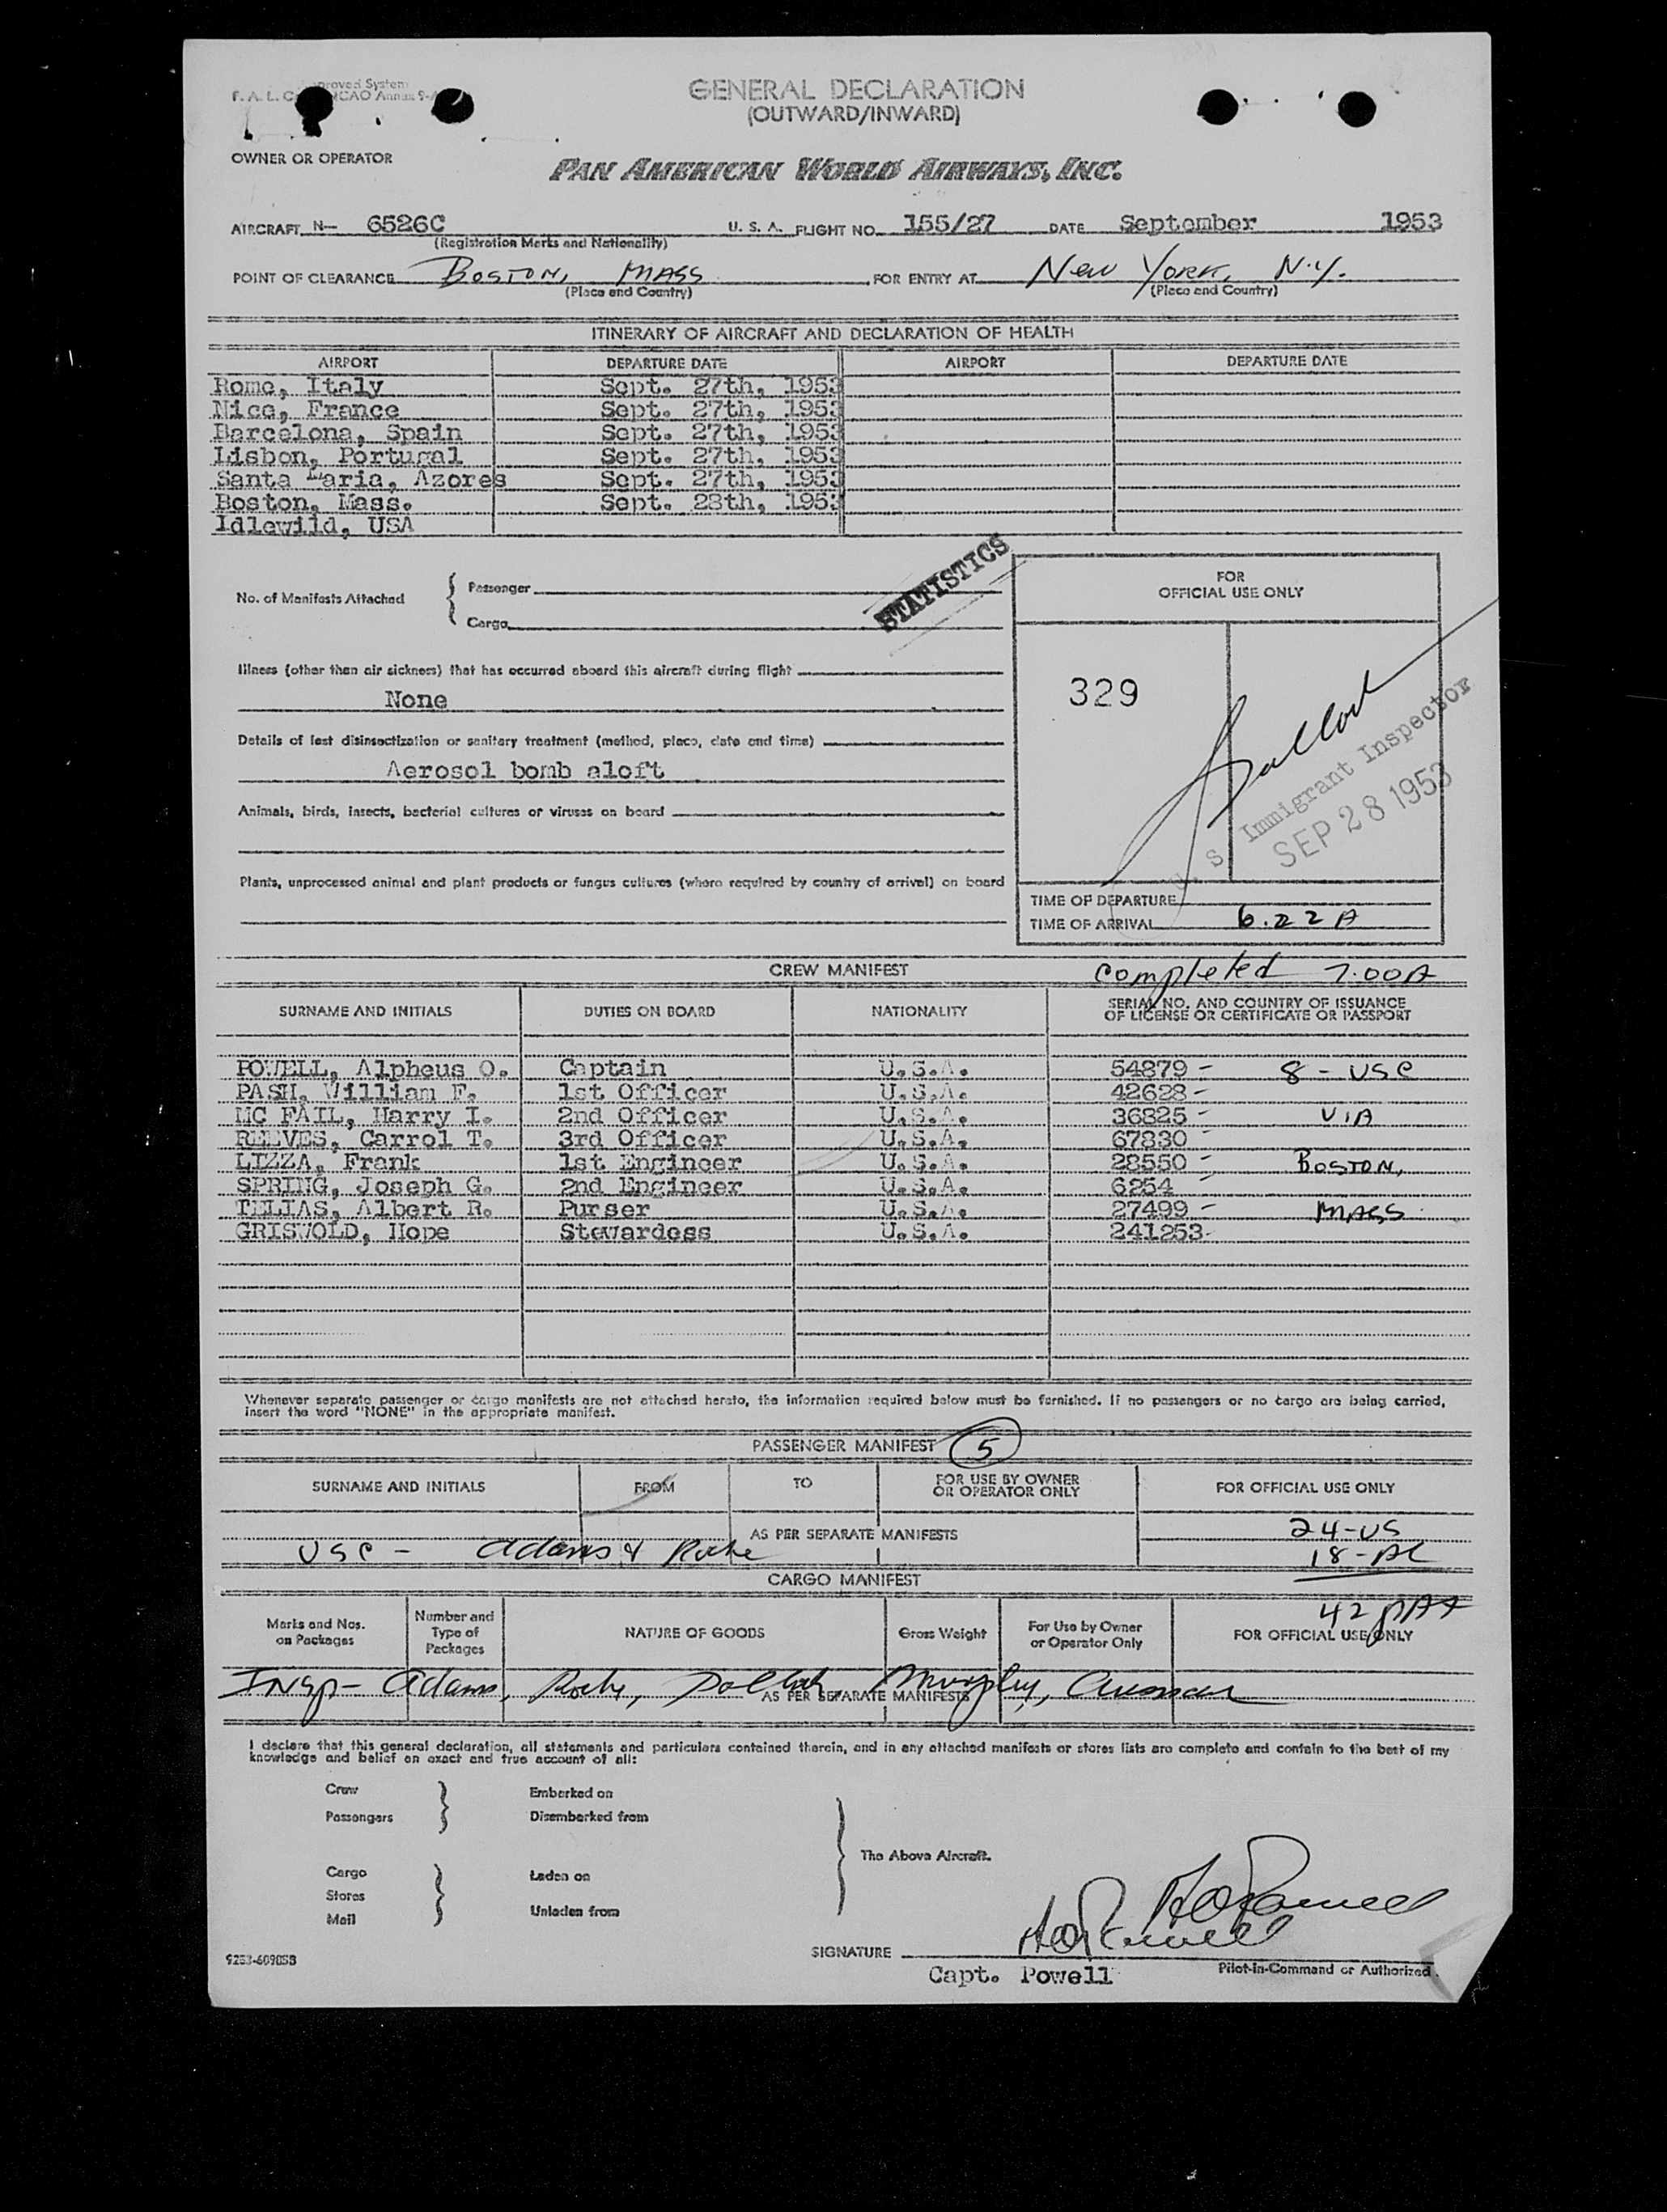 F. A. L. C ICAO Annex 9-A
proved System
GENERAL DECLARATION
(OUTWARD/INWARD)
OWNER OR OPERATOR
PAN AMERICAN WORLD AIRWAYS, INC.
AIRCRAFT N— 6526C U. S. A. FLIGHT NO. 155/27 DATE September 1953
(Registration Marks and Nationality)
POINT OF CLEARANCE BOSTON, MASS FOR ENTRY AT New York, N.Y.
(Place and Country) (Place and Country)
ITINERARY OF AIRCRAFT AND DECLARATION OF HEALTH
AIRPORT DEPARTURE DATE AIRPORT DEPARTURE DATE
Rome, Italy Sept. 27th, 1953
Nice, France Sept. 27th, 1953
Barcelona, Spain Sept. 27th, 1953
Lisbon, Portugal Sept. 27th, 1953
Santa Maria, Azores Sept. 27th, 1953
Boston, Mass. Sept. 28th, 1953
Idlewild, USA
STATISTICS
No. of Manifests Attached { Passenger
Cargo
FOR
OFFICIAL USE ONLY
Illness (other than air sickness) that has occurred aboard this aircraft during flight
None
329
Details of last disinsectization or sanitary treatment (method, place, date and time)
Aerosol bomb aloft
U. S. Immigrant Inspector
SEP 28 1953
Animals, birds, insects, bacterial cultures or viruses on board
Plants, unprocessed animal and plant products or fungus cultures (where required by country of arrival) on board
TIME OF DEPARTURE
TIME OF ARRIVAL 6.22 A
CREW MANIFEST completed 7.00A
SURNAME AND INITIALS DUTIES ON BOARD NATIONALITY SERIAL NO. AND COUNTRY OF ISSUANCE
OF LICENSE OR CERTIFICATE OR PASSPORT
POWELL, Alpheus O. Captain U.S.A. 54879 - 8 - USC
PASH, William F. 1st Officer U.S.A. 42628 -
MC FAIL, Harry I. 2nd Officer U.S.A. 36825 - VIA
REEVES, Carrol T. 3rd Officer U.S.A. 67830 -
LIZZA, Frank 1st Engineer U.S.A. 28550 - BOSTON,
SPRING, Joseph G. 2nd Engineer U.S.A. 6254 -
TELIAS, Albert R. Purser U.S.A. 27499 - MASS
GRISWOLD, Hope Stewardess U.S.A. 241253-
Whenever separate passenger or cargo manifests are not attached hereto, the information required below must be furnished. If no passengers or no cargo are being carried,
insert the word "NONE" in the appropriate manifest.
PASSENGER MANIFEST 5
SURNAME AND INITIALS FROM TO FOR USE BY OWNER
OR OPERATOR ONLY FOR OFFICIAL USE ONLY
AS PER SEPARATE MANIFESTS 24-US
USC - Adams & Roche 18-AL
CARGO MANIFEST
42 PAX
Marks and Nos.
on Packages Number and
Type of
Packages NATURE OF GOODS Gross Weight For Use by Owner
or Operator Only FOR OFFICIAL USE ONLY
INSP- Adams, Roche, Murphy,
AS PER SEPARATE MANIFESTS
I declare that this general declaration, all statements and particulars contained therein, and in any attached manifests or stores lists are complete and contain to the best of my
knowledge and belief an exact and true account of all:
Crew Embarked on
Passengers Disembarked from
The Above Aircraft.
Cargo Laden on
Stores
Mail Unladen from
A O Powell
A O Powell
SIGNATURE
Capt. Powell Pilot-in-Command or Authorized
9253-60905B